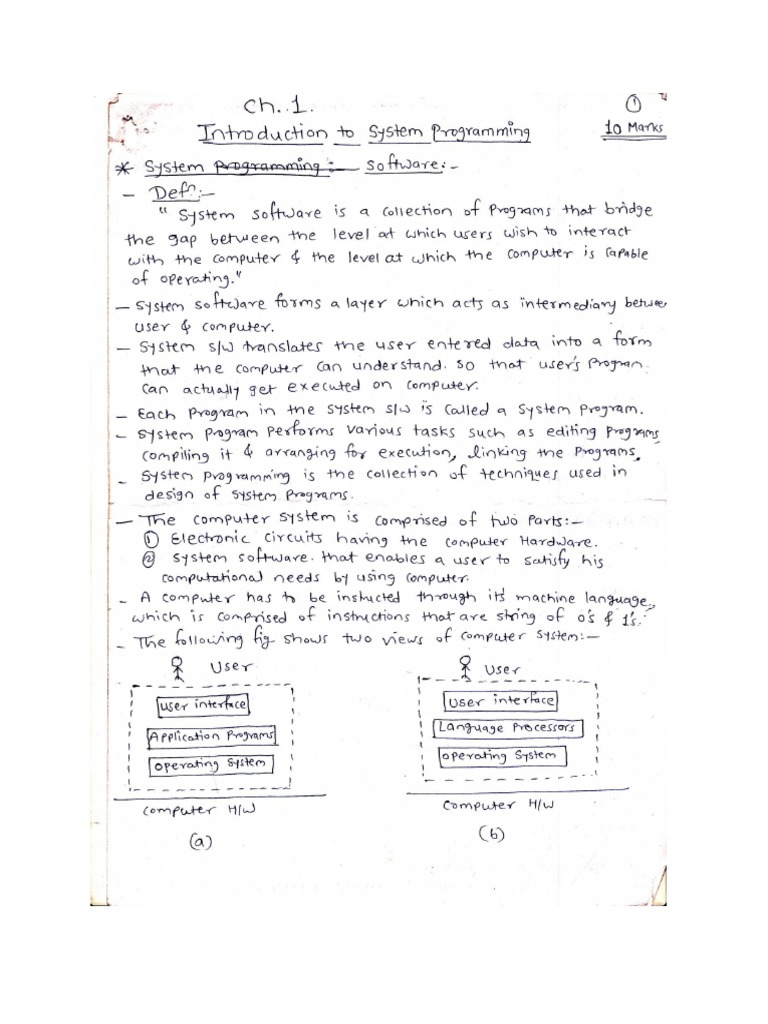 Ch. 1.
①
Introduction to System Programming
10 Marks
* System Programming:- Software:-
- Defⁿ:-
" System Software is a collection of Programs that bridge
the gap between the level at which users wish to interact
with the computer & the level at which the computer is capable
of operating."
- System Software forms a layer which acts as intermediary between
user & computer.
- System s/w translates the user entered data into a form
that the computer can understand. so that user's Program
can actually get executed on computer.
- Each Program in the system s/w is called a system Program.
- System Program Performs various tasks such as editing Programs,
compiling it & arranging for execution, linking the Programs,
- System Programming is the collection of techniques used in
design of System Programs.
- The computer system is comprised of two Parts:-
① Electronic circuits having the computer Hardware.
② System software. that enables a user to satisfy his
computational needs by using computer.
- A computer has to be instucted through its machine language,
which is comprised of instructions that are string of 0's & 1's.
- The following fig. shows two views of computer System:-
User
user interface
Application Programs
operating System
computer H/W
(a)
User
User interface
Language Processors
operating System
computer H/W
(b)